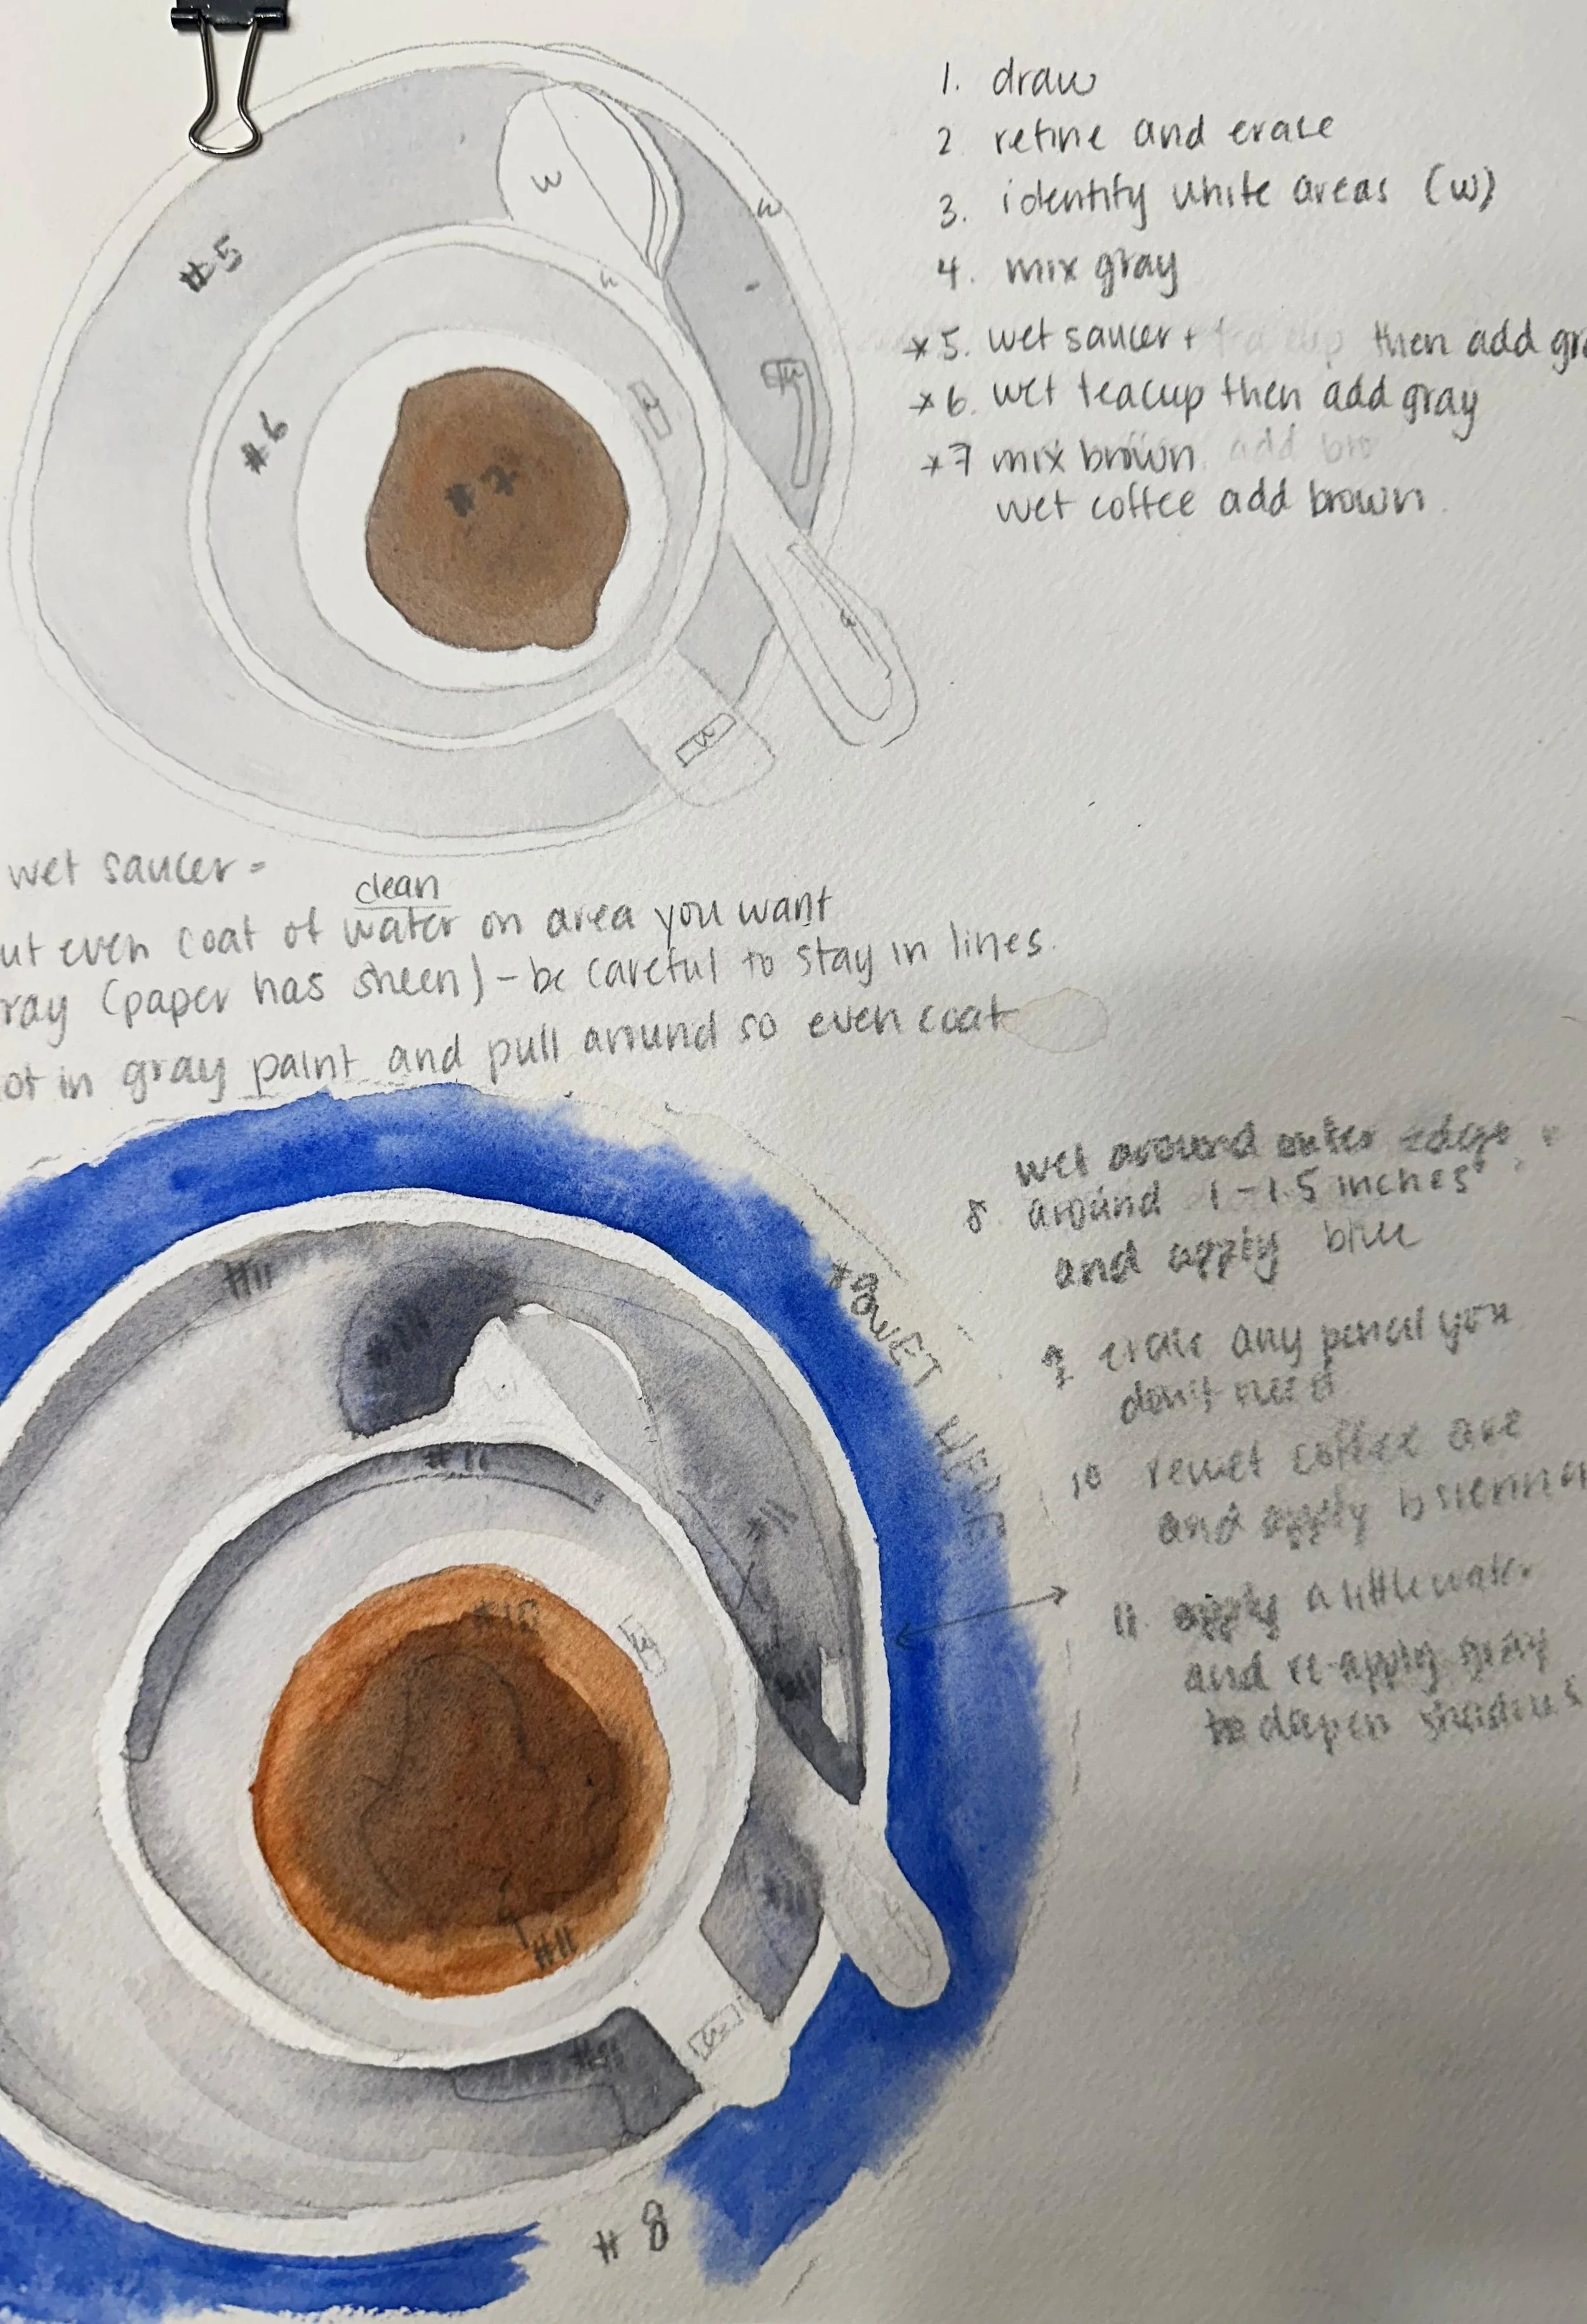 1. draw
2 refine and erase
3. identify white areas (w)
4. mix gray
*5. wet saucer + then add gra
*6. wet teacup then add gray
*7 mix brown. add bro
wet coffee add brown.
w
w
#5
w
w
#6
w
#7
w
w
wet saucer =
clean
ut even coat of water on area you want
ray (paper has sheen) - be careful to stay in lines.
ot in gray paint and pull around so even coat
wet around outer edge
8. around 1-1.5 inches
and apply blue
*8 WET HERE
9 erase any pencil you
don't need
10 rewet coffee are
and apply b sienna
11 apply a little water
and re-apply gray
to dapen shadows
#11
#11
#11
#11
#10
w
#11
#11
#11
w
#11
#8